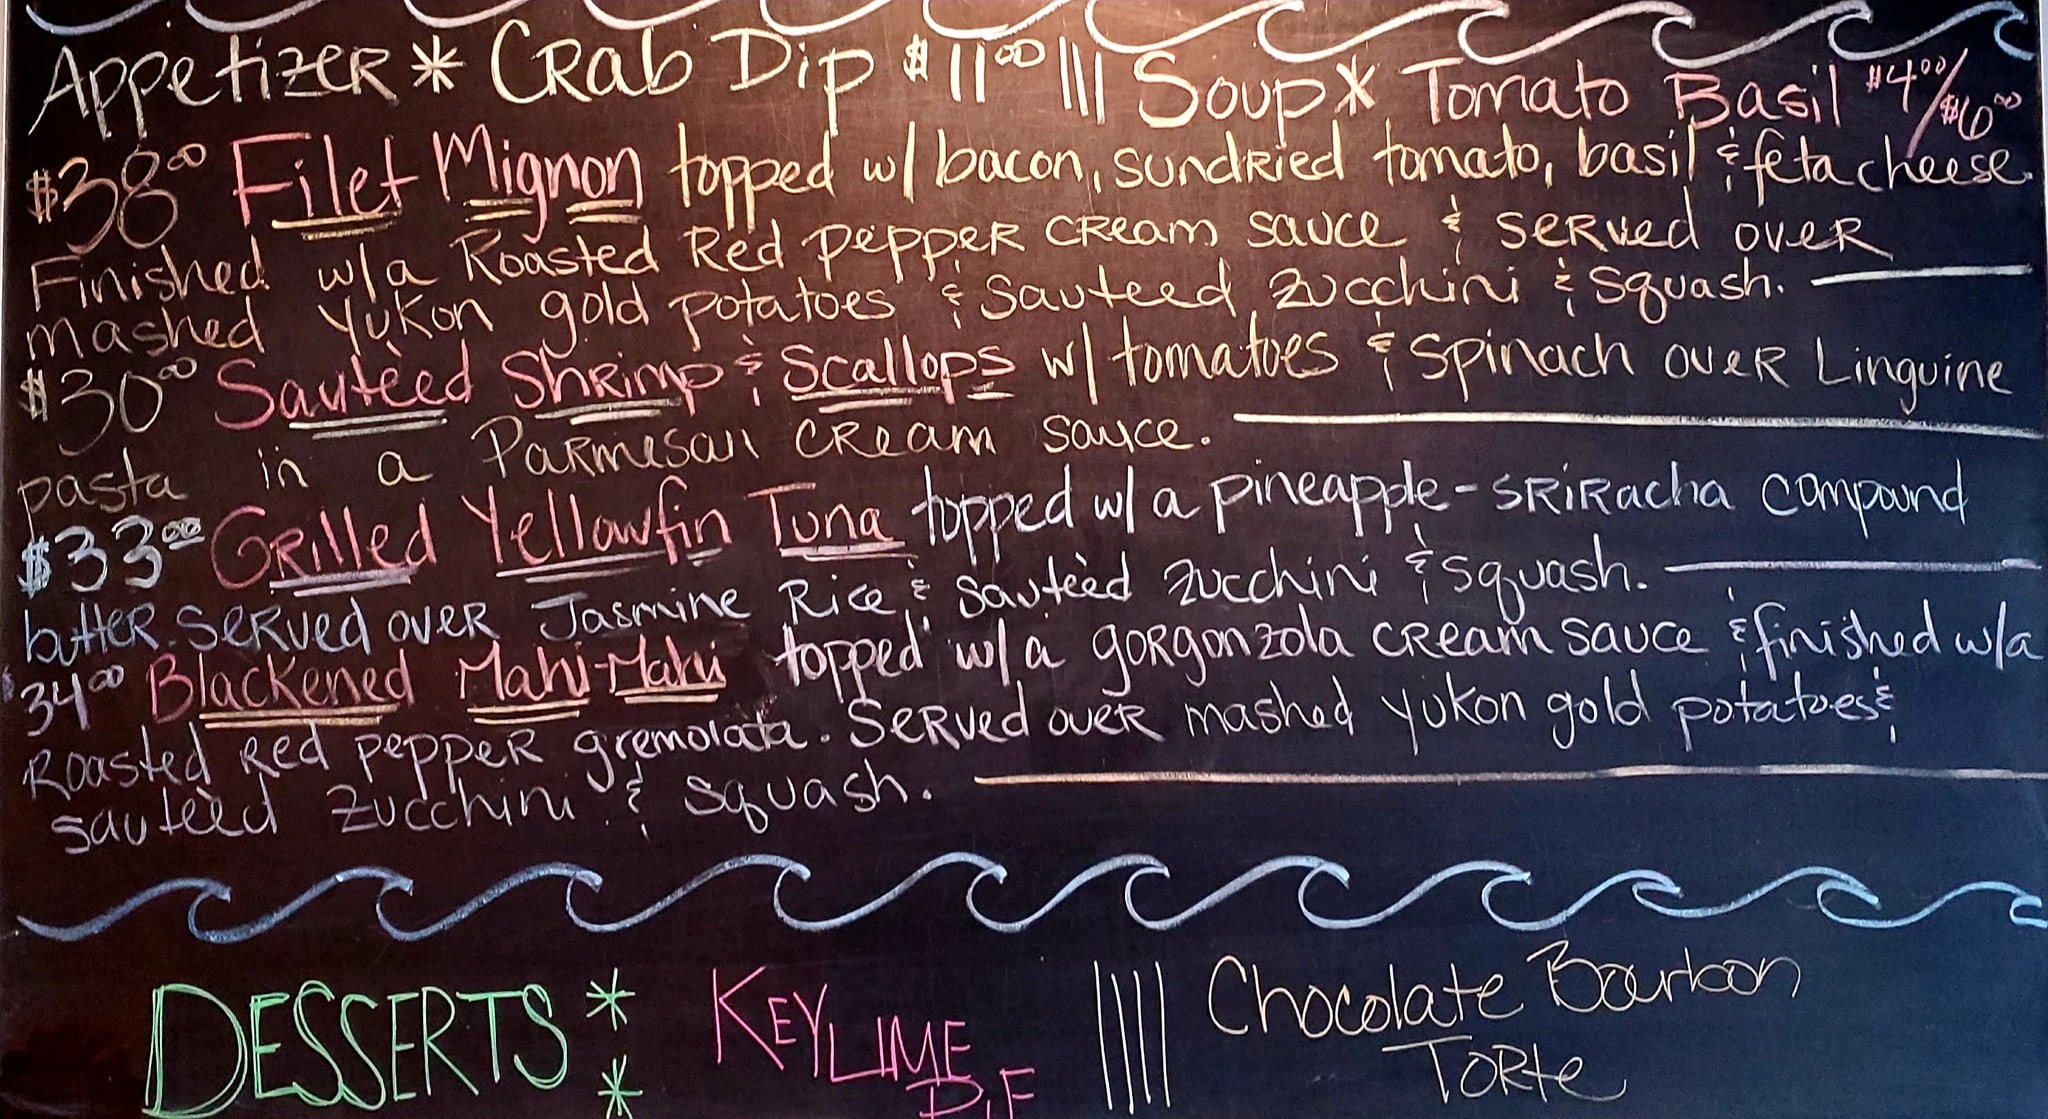 Appetizer * Crab Dip $11.00 |||| Soup * Tomato Basil $4.00/$6.00
$38.00 Filet Mignon topped w/ bacon, sundried tomato, basil & feta cheese.
Finished w/a Roasted Red pepper cream sauce & served over
mashed yukon gold potatoes & sauteed zucchini & squash.
$30.00 Sautèed Shrimp & Scallops w/ tomatoes & spinach over Linguine
pasta in a Parmesan cream sauce.
$33.00 Grilled Yellowfin Tuna topped w/ a pineapple-sriracha compound
butter. Served over Jasmine Rice & sautèed zucchini & squash.
$34.00 Blackened Mahi-Mahi topped w/a gorgonzola cream sauce & finished w/a
roasted red pepper gremolata. Served over mashed yukon gold potatoes &
sautèed zucchini & squash.
DESSERTS ** KEY LIME ||||| Chocolate Bourbon
PIE Torte